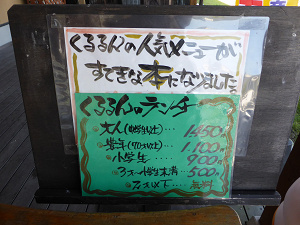 くるるんの人気メニューが
すてきな本になりました。
くるるんのランチ
大人(中学生以上)‥‥1450円
(70才以上)‥‥1.100円
小学生‥‥‥900円
3才〜小学生未満‥‥500円
2才以下‥‥無料